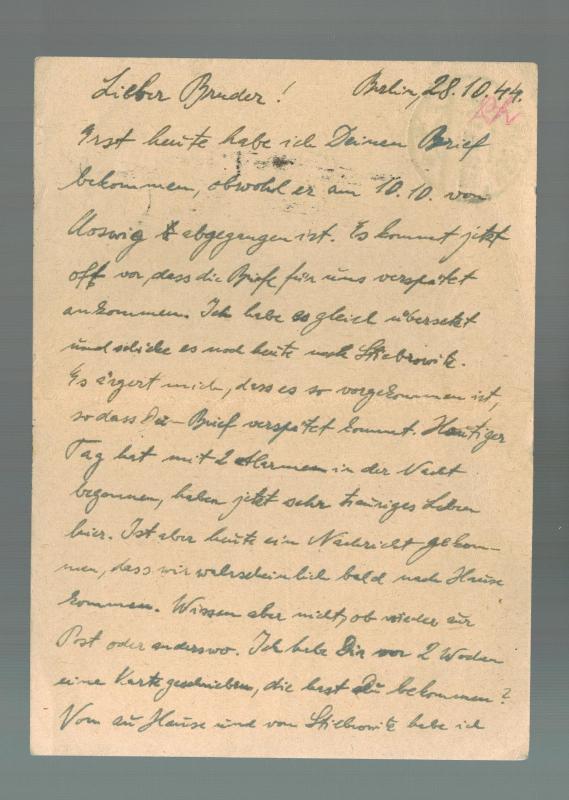 Lieber Bruder! Berlin, 28.10.44.
Erst heute habe ich Deinen Brief
bekommen, obwohl er am 10.10. von
Coswig abgegangen ist. Es kommt jetzt
oft vor, dass die Briefe für uns verspätet
ankommen. Ich habe sogleich übersetzt
und schicke es noch heute nach Stiebrowitz.
Es ärgert mich, dass es so vorgekommen ist,
so dass der Brief verspätet kommt. Heutiger
Tag hat mit 2 Alarmen in der Nacht
begonnen, haben jetzt sehr trauriges Leben
hier. Ist aber heute ein Nachricht gekom-
men, dass wir wahrscheinlich bald nach Hause
kommen. Wissen aber nicht, ob wieder zur
Post oder anderswo. Ich habe Dir vor 2 Wochen
eine Karte geschrieben, die hast Du bekommen?
Vom zu Hause und von Stiebrowitz habe ich